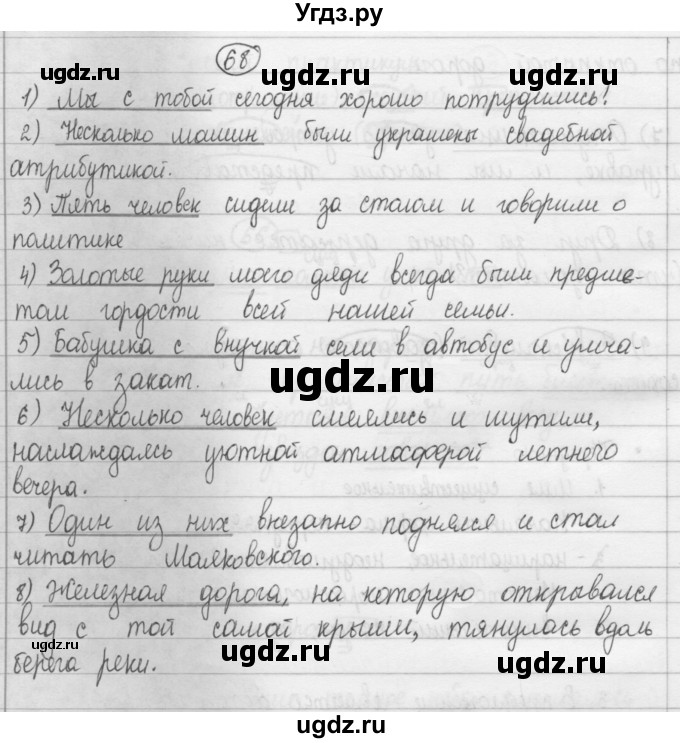 Угдз.ру
68
ugdz.ru ugdz.ru ugdz.ru
1) Мы с тобой сегодня хорошо потрудились!
2) Несколько машин были украшены свадебной
атрибутикой.
ugdz.ru ugdz.ru
3) Пять человек сидели за столом и говорили о
политике
4) Золотые руки моего дяди всегда были предме-
том гордости всей нашей семьи.
ugdz.ru ugdz.ru ugdz.ru
5) Бабушка с внучкой сели в автобус и умча-
лись в закат.
ugdz.ru
6) Несколько человек смеялись и шутили,
наслаждаясь уютной атмосферой летнего
вечера.
ugdz.ru ugdz.ru
7) Один из них внезапно поднялся и стал
читать Маяковского.
ugdz.ru ugdz.ru
8) Железная дорога, на которую открывался
вид с той самой крыши, тянулась вдоль
берега реки.
ugdz.ru ugdz.ru
ugdz.ru